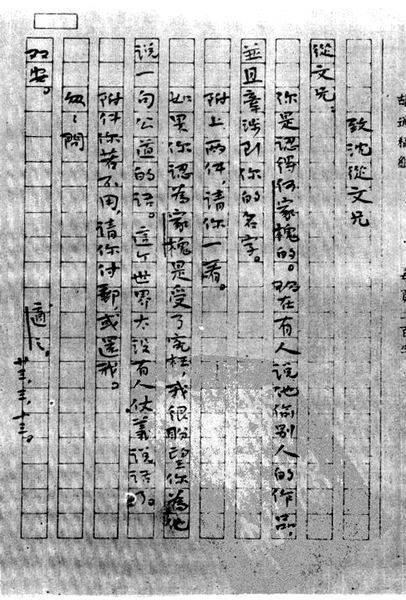 致沈從文兄
從文兄:
你是認得何家槐的。現在有人說他偷別人的作品,
並且牽涉到你的名字。
附上兩件,請你一看。
如果你認為家槐是受了冤枉,我很盼望你為他
說一句公道的話。這个世界太沒有人仗義說話了。
附件你若不用,請你付郵或還我。
匆匆問
双安。
適之。
廿三,三,十三。